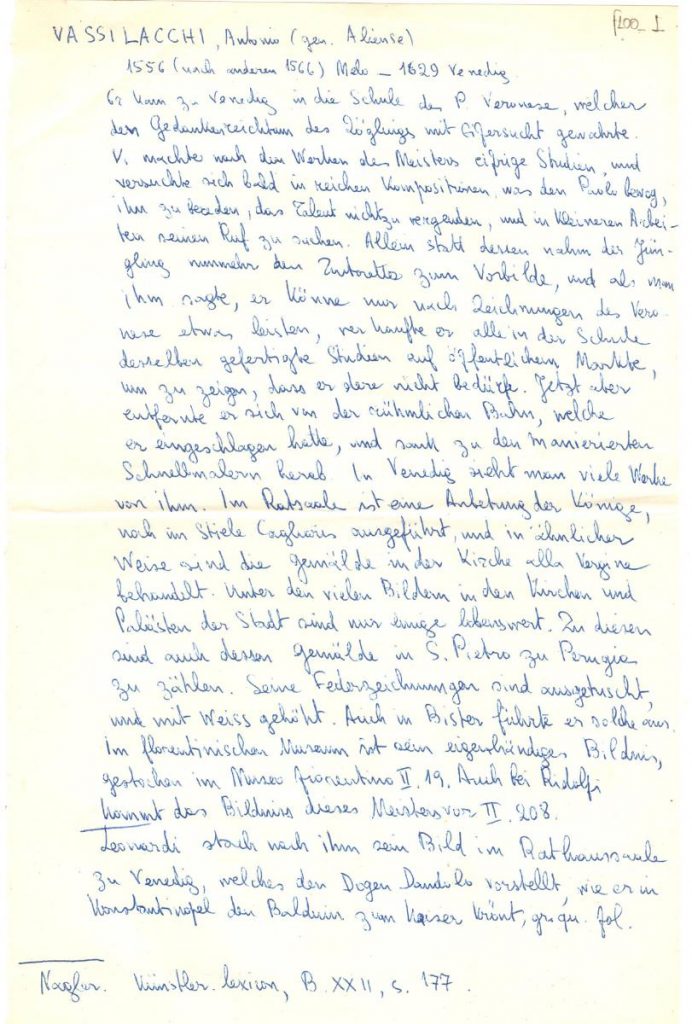 f100_1
VASSILACCHI, Antonio (gen. Aliense)
1556 (nach anderen 1566) Melo – 1629 Venedig
Er kam zu Venedig in die Schule des P. Veronese, welcher
den Gedankenreichtum des Zöglings mit Eifersucht gewahrte.
V. machte nach den Werken des Meisters eifrige Studien, und
versuchte sich bald in reichen Kompositionen, was den Paolo bewog,
ihm zu, das Talent nicht zu vergeuden, und in kleineren Arbei-
ten seinen Ruf zu suchen. Allein statt dessen nahm der Jün-
gling nunmehr den Tintoretto zum Vorbilde, und als man
ihm sagte, er könne nur nach Zeichnungen des Vero-
nese etwas leisten, verkaufte er alle in der Schule
desselben gefertigte Studien auf öffentlichem Markte,
um zu zeigen, dass er derer nicht bedürfe. Jetzt aber
entfernte er sich von der rühmlichen Bahn, welche
er eingeschlagen hatte, und sank zu den manierierten
Schnellmalern herab. In Venedig sieht man viele Werke
von ihm. Im Ratsaale ist eine Anbetung der Könige,
noch im Stiele Cagliaris ausgeführt, und in ähnlicher
Weise sind die Gemälde in der Kirche alla Vergine
behandelt. Unter den vielen Bildern in den Kirchen und
Palästen der Stadt sind nur einige lobenswert. Zu diesen
sind auch dessen Gemälde in S. Pietro zu Perugia
zu zählen. Seine Federzeichnungen sind ausgetuscht,
und mit Weiss gehöht. Auch in Bister führte er solche aus.
Im florentinischen Museum ist sein eigenhändiges Bildnis,
gestochen im Museo fiorentino II. 19. Auch bei Ridolfi
kommt das Bildniss dieses Meisters vor II. 208.
Leonardi stach nach ihm sein Bild im Rathaussaale
zu Venedig, welches den Dogen Dandolo vorstellt, wie er in
Konstantinopel den Balduin zum Kaiser krönt, gr. qu. fol.
Nagler. Künstler-lexicon, B. XXII, s. 177.